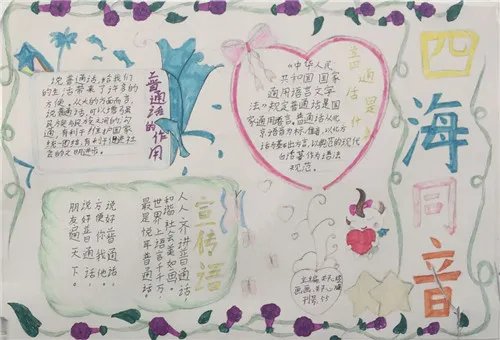 四海同音
普通话的作用
说普通话给我们
的生活带来了许多的
方便。从大的方面而言,
说普通话,可以增强
民族与民族之间的沟
通,有利于维护国家
统一团结,有利于推进社
会的文明进步。
普通话是什
《中华人民
共和国国家
通用语言文字
法》规定普通话是国
家通用语言。普通话以北
京语音为标准音,以北方
话为基础方言,以典范的现代
白话文著作为语法
规范。
宣传语
人人齐讲普通话
和谐社会美如画。
世界上语言千千万,
最是悦耳普通话。
说好普通话,
方便你我他。
说好普通话,
朋友遍天下。
主编:
刊号: